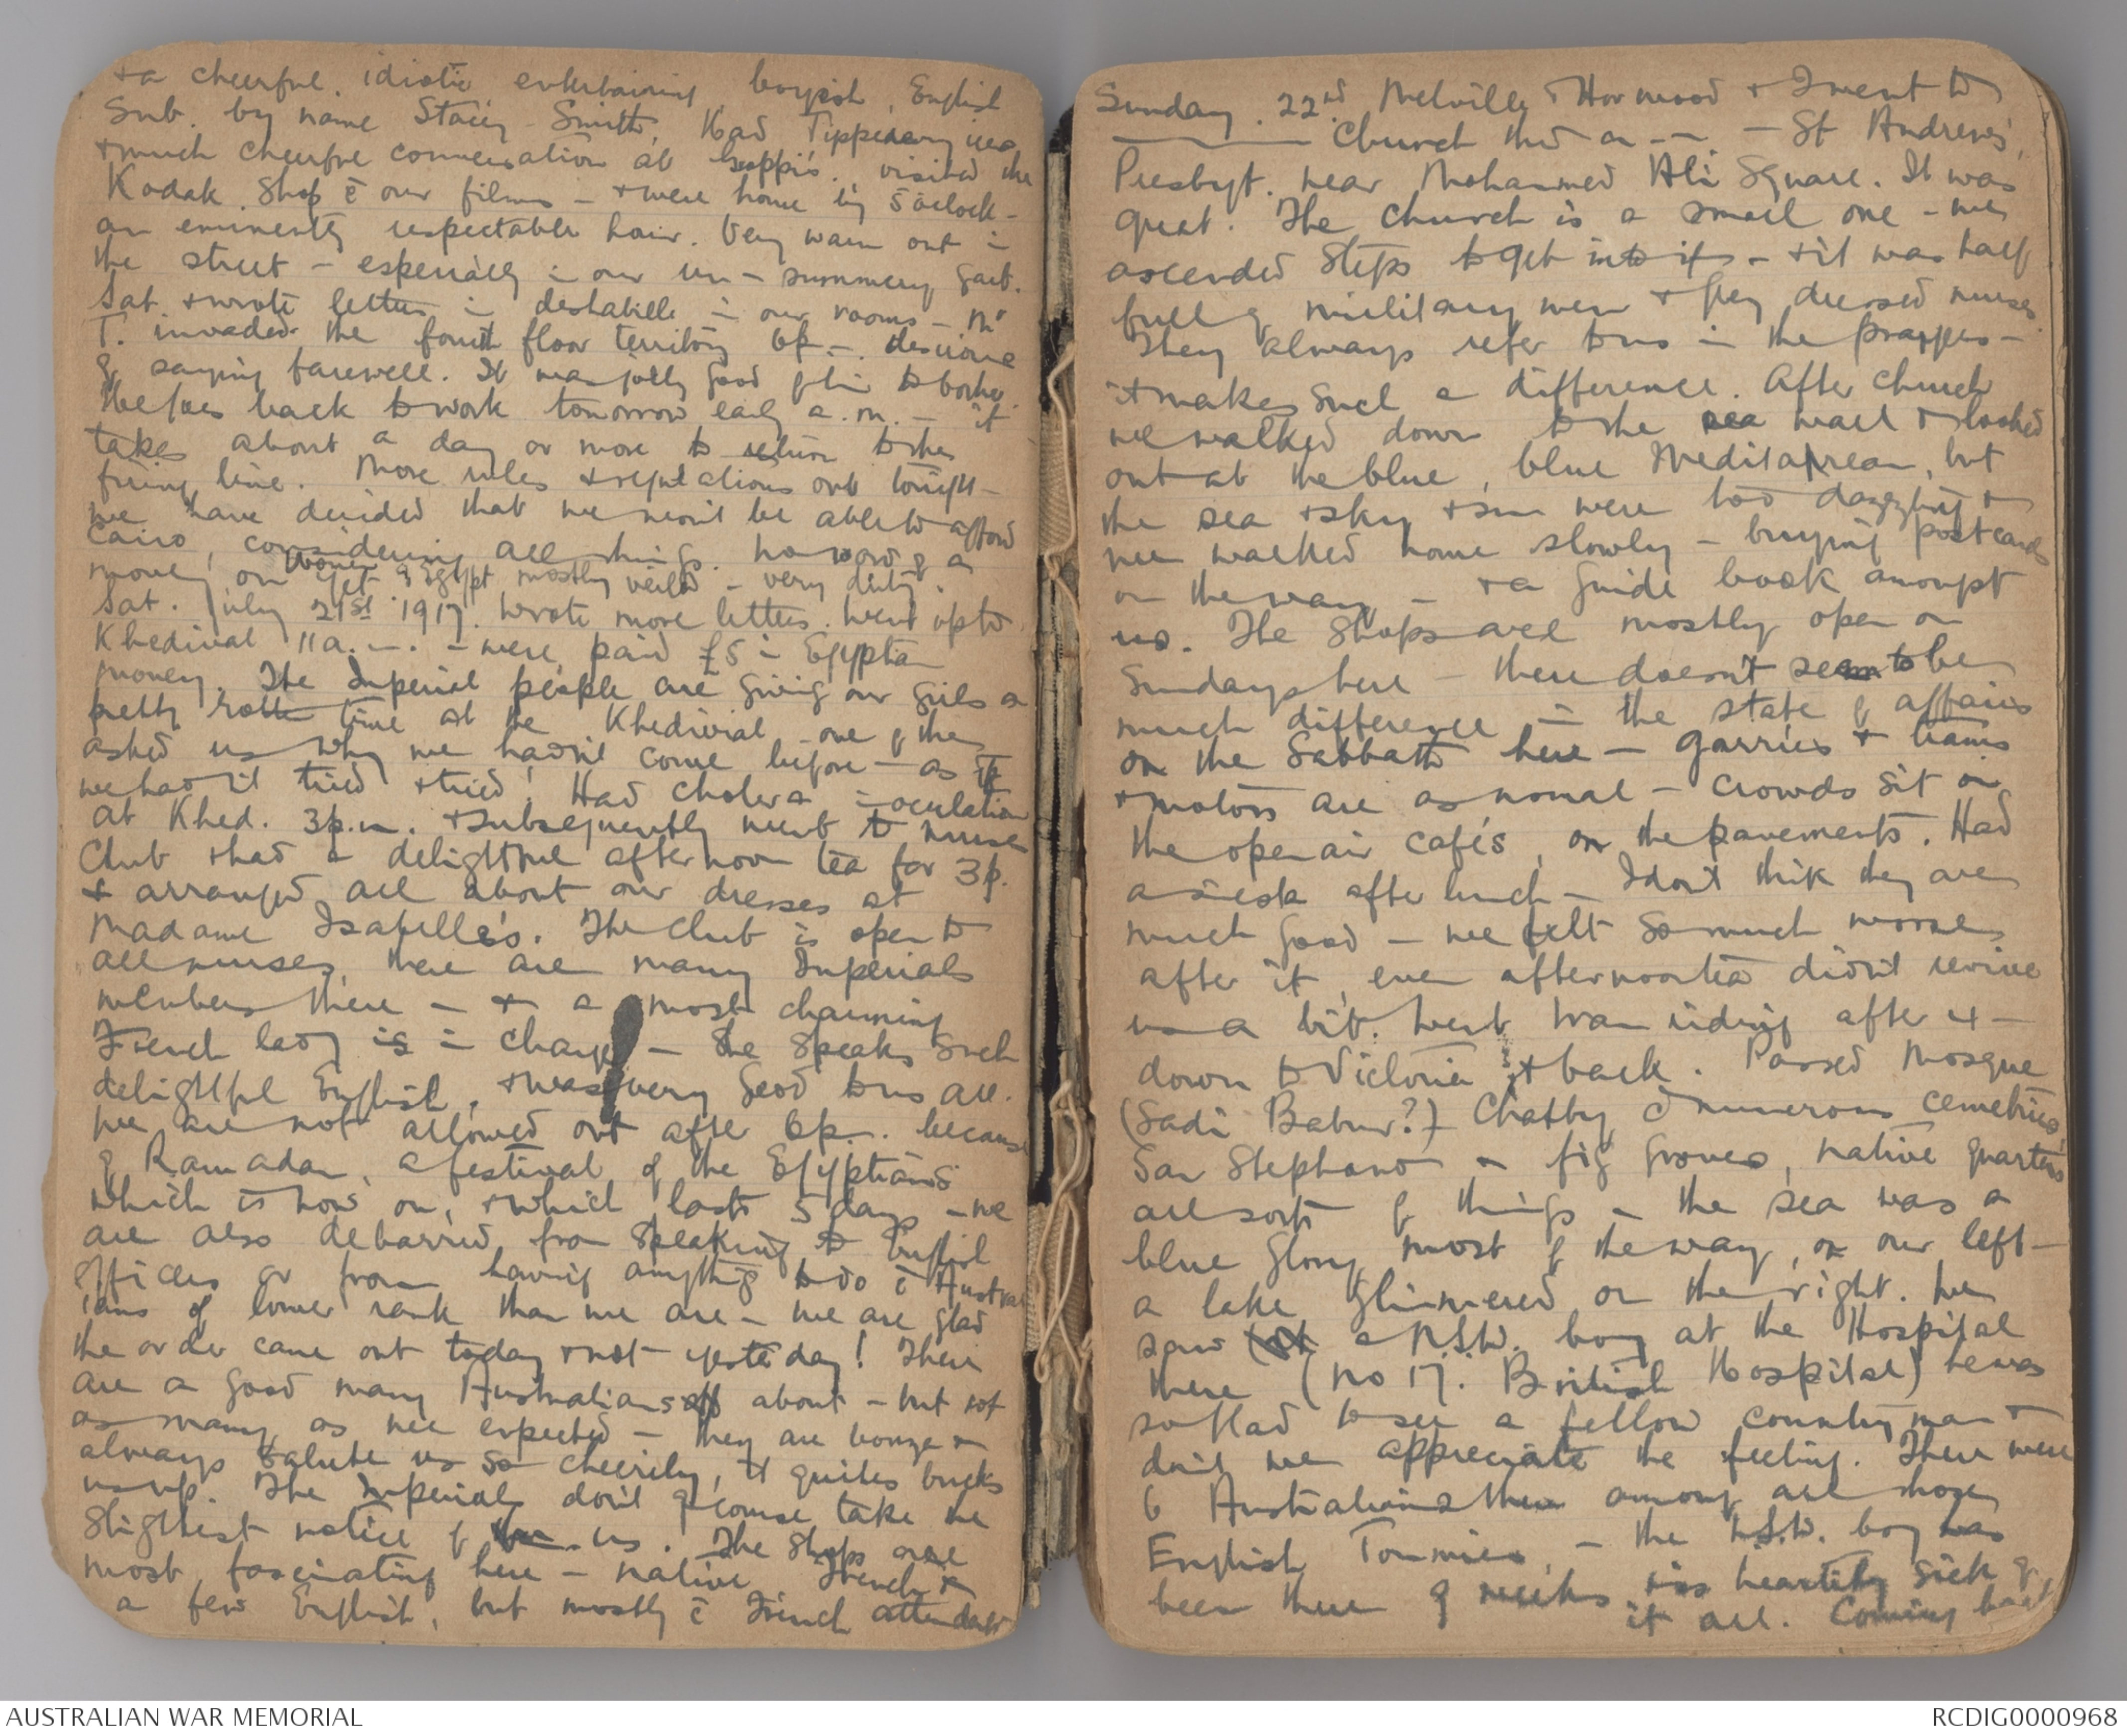 + a cheerful, idiotic entertaining, boyish, English
Sub. by name Stacey-Smith. Had Tipperary ices
+ much cheerful conversation at Groppi's. visited the
Kodak Shop c̄ our films - + were home by 5 oclock -
an eminently respectable hour. Very warm out in
the street - especially in our un-summery garb.
Sat + wrote letters in deshabille in our rooms - Mr
T. invaded the fourth floor territory 6p.m. desirous
of saying farewell. It was jolly good of him to bother.
He goes back to work tomorrow early a.m. - it
takes about a day or more to return to the
firing line. More rules + regulations out tonight -
we have decided that we won't be able to afford
Cairo, considering all things. no word of any
money on yet. Women of Egypt mostly veiled - very dirty.
Sat. July 21st 1917. Wrote more letters. Went up to
Khedivial 11 a.m. - were paid £5 in Egyptian
money. The Imperial people are giving our girls a
pretty rotten time at the Khedivial - one of them
asked us why we hadn't come before - as if
we hadn't tried + tried! Had cholera inoculation
at Khed. 3p.m. + subsequently went to Nurses
Club + had a delightful afternoon tea for 3p.
+ arranged all about our dresses at
Madame Isabelle's. The Club is open to
all nurses, there are many Imperial
members there - + a most charming
French lady is in charge - She speaks such
delightful English, + was very good to us all.
We are not allowed out after 6p.m. because
of Ramadan, a festival of the Egyptians
which is now on, + which lasts 5 days - we
are also debarred from speaking to English
officers or from having anything to do c̄ Austral
ians of lower rank than we are - we are glad
the order came out today + not yesterday! There
are a good many Australians about - but not
as many as we expected - they are bonza +
always salute us so cheerily, it quites bucks
us up. The Imperials don't of course take the
slightest notice of us. The shops are
most fascinating here - native French +
a few English, but mostly c̄ French attendants
Sunday. 22nd. Melville, Horwood + I went to
Church this a.m. - St Andrews,
Presbyt. near Mohammed Ali Square. It was
great. The church is a small one - we
ascended steps to get into it - + it was half
full of military men + grey dressed nurses.
They always refer to us in the prayers -
it makes such a difference. After church
we walked down to the sea wall + looked
out at the blue, blue Meditarrean, but
the sea + sky + sun were too dazzling +
we walked home slowly - buying postcards
on the way - + a guide book amongst
us. The shops are mostly open on
Sundays here - there doesn't seem to be
much difference in the state of affairs
on the Sabbath here - garries + trams
+ motors are as normal - crowds sit in
the open air cafés, on the pavements. Had
a siesta after lunch - I don't think they are
much good - we felt so much worse
after it, even afternoon tea didn't revive
us a bit. Went tram riding after 4 -
down to Victoria + back. Passed Mosque
(Sadi Babur?) Chatby c̄ numerous cemetries,
San Stephano - fig groves, native quarters
all sorts of things - the sea was a
blue glory most of the way, on our left -
a lake glimmered on the right. We
saw a N.S.W. boy at the Hospital
there (No 17. British Hospital) he was
so glad to see a fellow countryman +
don't we appreciate the feeling. There were
6 Australians there among all those
English Tommies, - the N.S.W. boy has
been there 9 weeks + is heartily sick of
it all. Coming back
AUSTRALIAN WAR MEMORIAL
RCDIG0000968